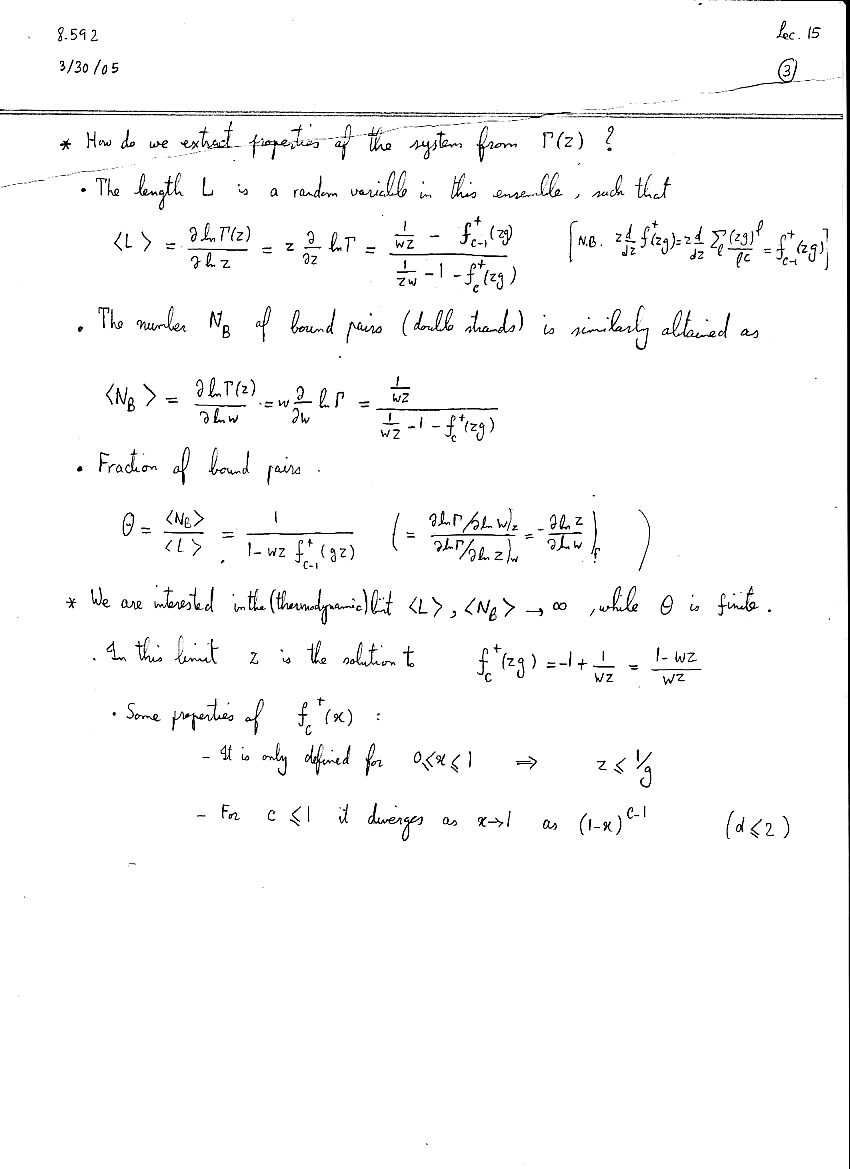 8.592
Lec. 15
3/30/05
③
* How do we extract properties of the system from Γ(z) ?
• The length L is a random variable in this ensemble, such that
⟨L⟩ = ∂lnΓ(z)/∂ln z = z ∂/∂z lnΓ = (1/wz - f⁺_{c-1}(zg))/(1/zw - 1 - f⁺_c(zg)) [N.B. z d/dz f⁺(zg) = z d/dz Σ_ℓ (zg)^ℓ/ℓ^c = f⁺_{c-1}(zg)]
• The number N_B of bound pairs (double strands) is similarly obtained as
⟨N_B⟩ = ∂lnΓ(z)/∂ln w = w ∂/∂w lnΓ = (1/wz)/(1/wz - 1 - f⁺_c(zg))
• Fraction of bound pairs.
Θ = ⟨N_B⟩/⟨L⟩ = 1/(1 - wz f⁺_{c-1}(gz)) ( = (∂lnΓ/∂ln w|_z)/(∂lnΓ/∂ln z)_w = -∂ln z/∂ln w|_Γ )
* We are interested in the (thermodynamic) limit ⟨L⟩, ⟨N_B⟩ → ∞, while Θ is finite.
. In this limit z is the solution to f⁺_c(zg) = -1 + 1/wz = (1 - wz)/wz
• Some properties of f_c⁺(x) :
- It is only defined for 0⩽x⩽1 ⇒ z ⩽ 1/g
- For c ⩽1 it diverges as x→1 as (1-x)^{c-1} (d⩽2)